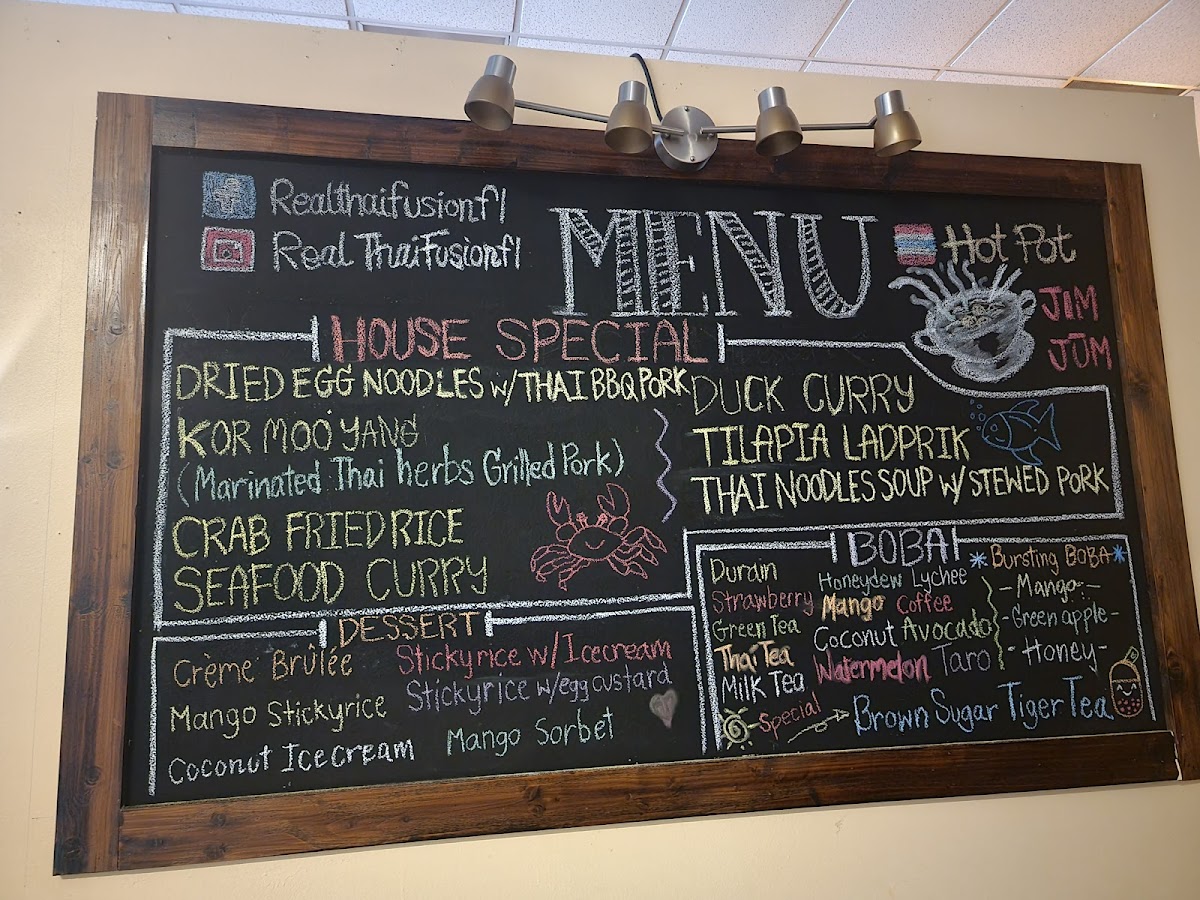 Realthaifusionfl
Real ThaiFusionfl
MENU
Hot Pot
JIM
JUM
HOUSE SPECIAL
DRIED EGG NOODLES W/THAI BBQ PORK
KOR MOO YANG
(Marinated Thai herbs Grilled Pork)
CRAB FRIED RICE
SEAFOOD CURRY
DUCK CURRY
TILAPIA LADPRIK
THAI NOODLES SOUP W/ STEWED PORK
DESSERT
Crème Brûlée
Mango Stickyrice
Coconut Ice cream
Stickyrice w/Icecream
Stickyrice w/egg custard
Mango Sorbet
BOBA
Durain
Strawberry
Green Tea
Thai Tea
Milk Tea
Honeydew Lychee
Mango Coffee
Coconut Avocado
Watermelon Taro
*Bursting BOBA*
-Mango-
-Green apple-
-Honey-
Special
Brown Sugar Tiger Tea